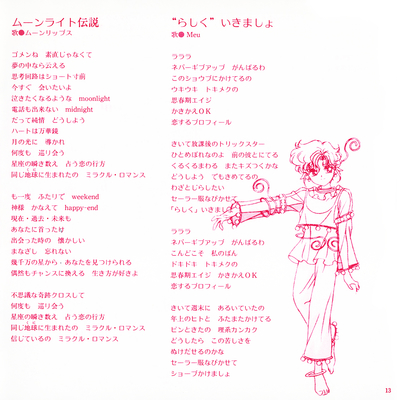 ムーンライト伝説
歌●ムーンリップス
ゴメンね 素直じゃなくて
夢の中なら云える
思考回路はショート寸前
今すぐ 会いたいよ
泣きたくなるような moonlight
電話も出来ない midnight
だって純情 どうしよう
ハートは万華鏡
月の光に 導かれ
何度も 巡り会う
星座の瞬き数え 占う恋の行方
同じ地球に生まれたの ミラクル・ロマンス
も一度 ふたりで weekend
神様 かなえて happy-end
現在・過去・未来も
あなたに首ったけ
出会った時の 懐かしい
まなざし 忘れない
幾千万の星から・あなたを見つけられる
偶然もチャンスに換える 生き方が好きよ
不思議な奇跡クロスして
何度も 巡り会う
星座の瞬き数え 占う恋の行方
同じ地球に生まれたの ミラクル・ロマンス
信じているの ミラクル・ロマンス
“らしく”いきましょ
歌● Meu
ラララ
ネバーギブアップ がんばるわ
このショウブにかけてるの
ウキウキ トキメクの
思春期エイジ
かきかえOK
恋するプロフィール
きいて放課後のトリックスター
ひとめぼれなのよ 前の彼とにてる
くるくるまわる またキズつくかな
どうしよう でもきめてるの
わざとじらしたい
セーラー服なびかせて
「らしく」いきましょ
ラララ
ネバーギブアップ がんばるわ
こんどこそ 私のばん
ドキドキ トキメクの
思春期エイジ かきかえOK
恋するプロフィール
きいて週末に あるいていたの
年上のヒトと ふたまたかけてる
ピンときたの 理系カンカク
どうしたら この苦しさを
ぬけだせるのかな
セーラー服なびかせて
ショーブかけましょ
13